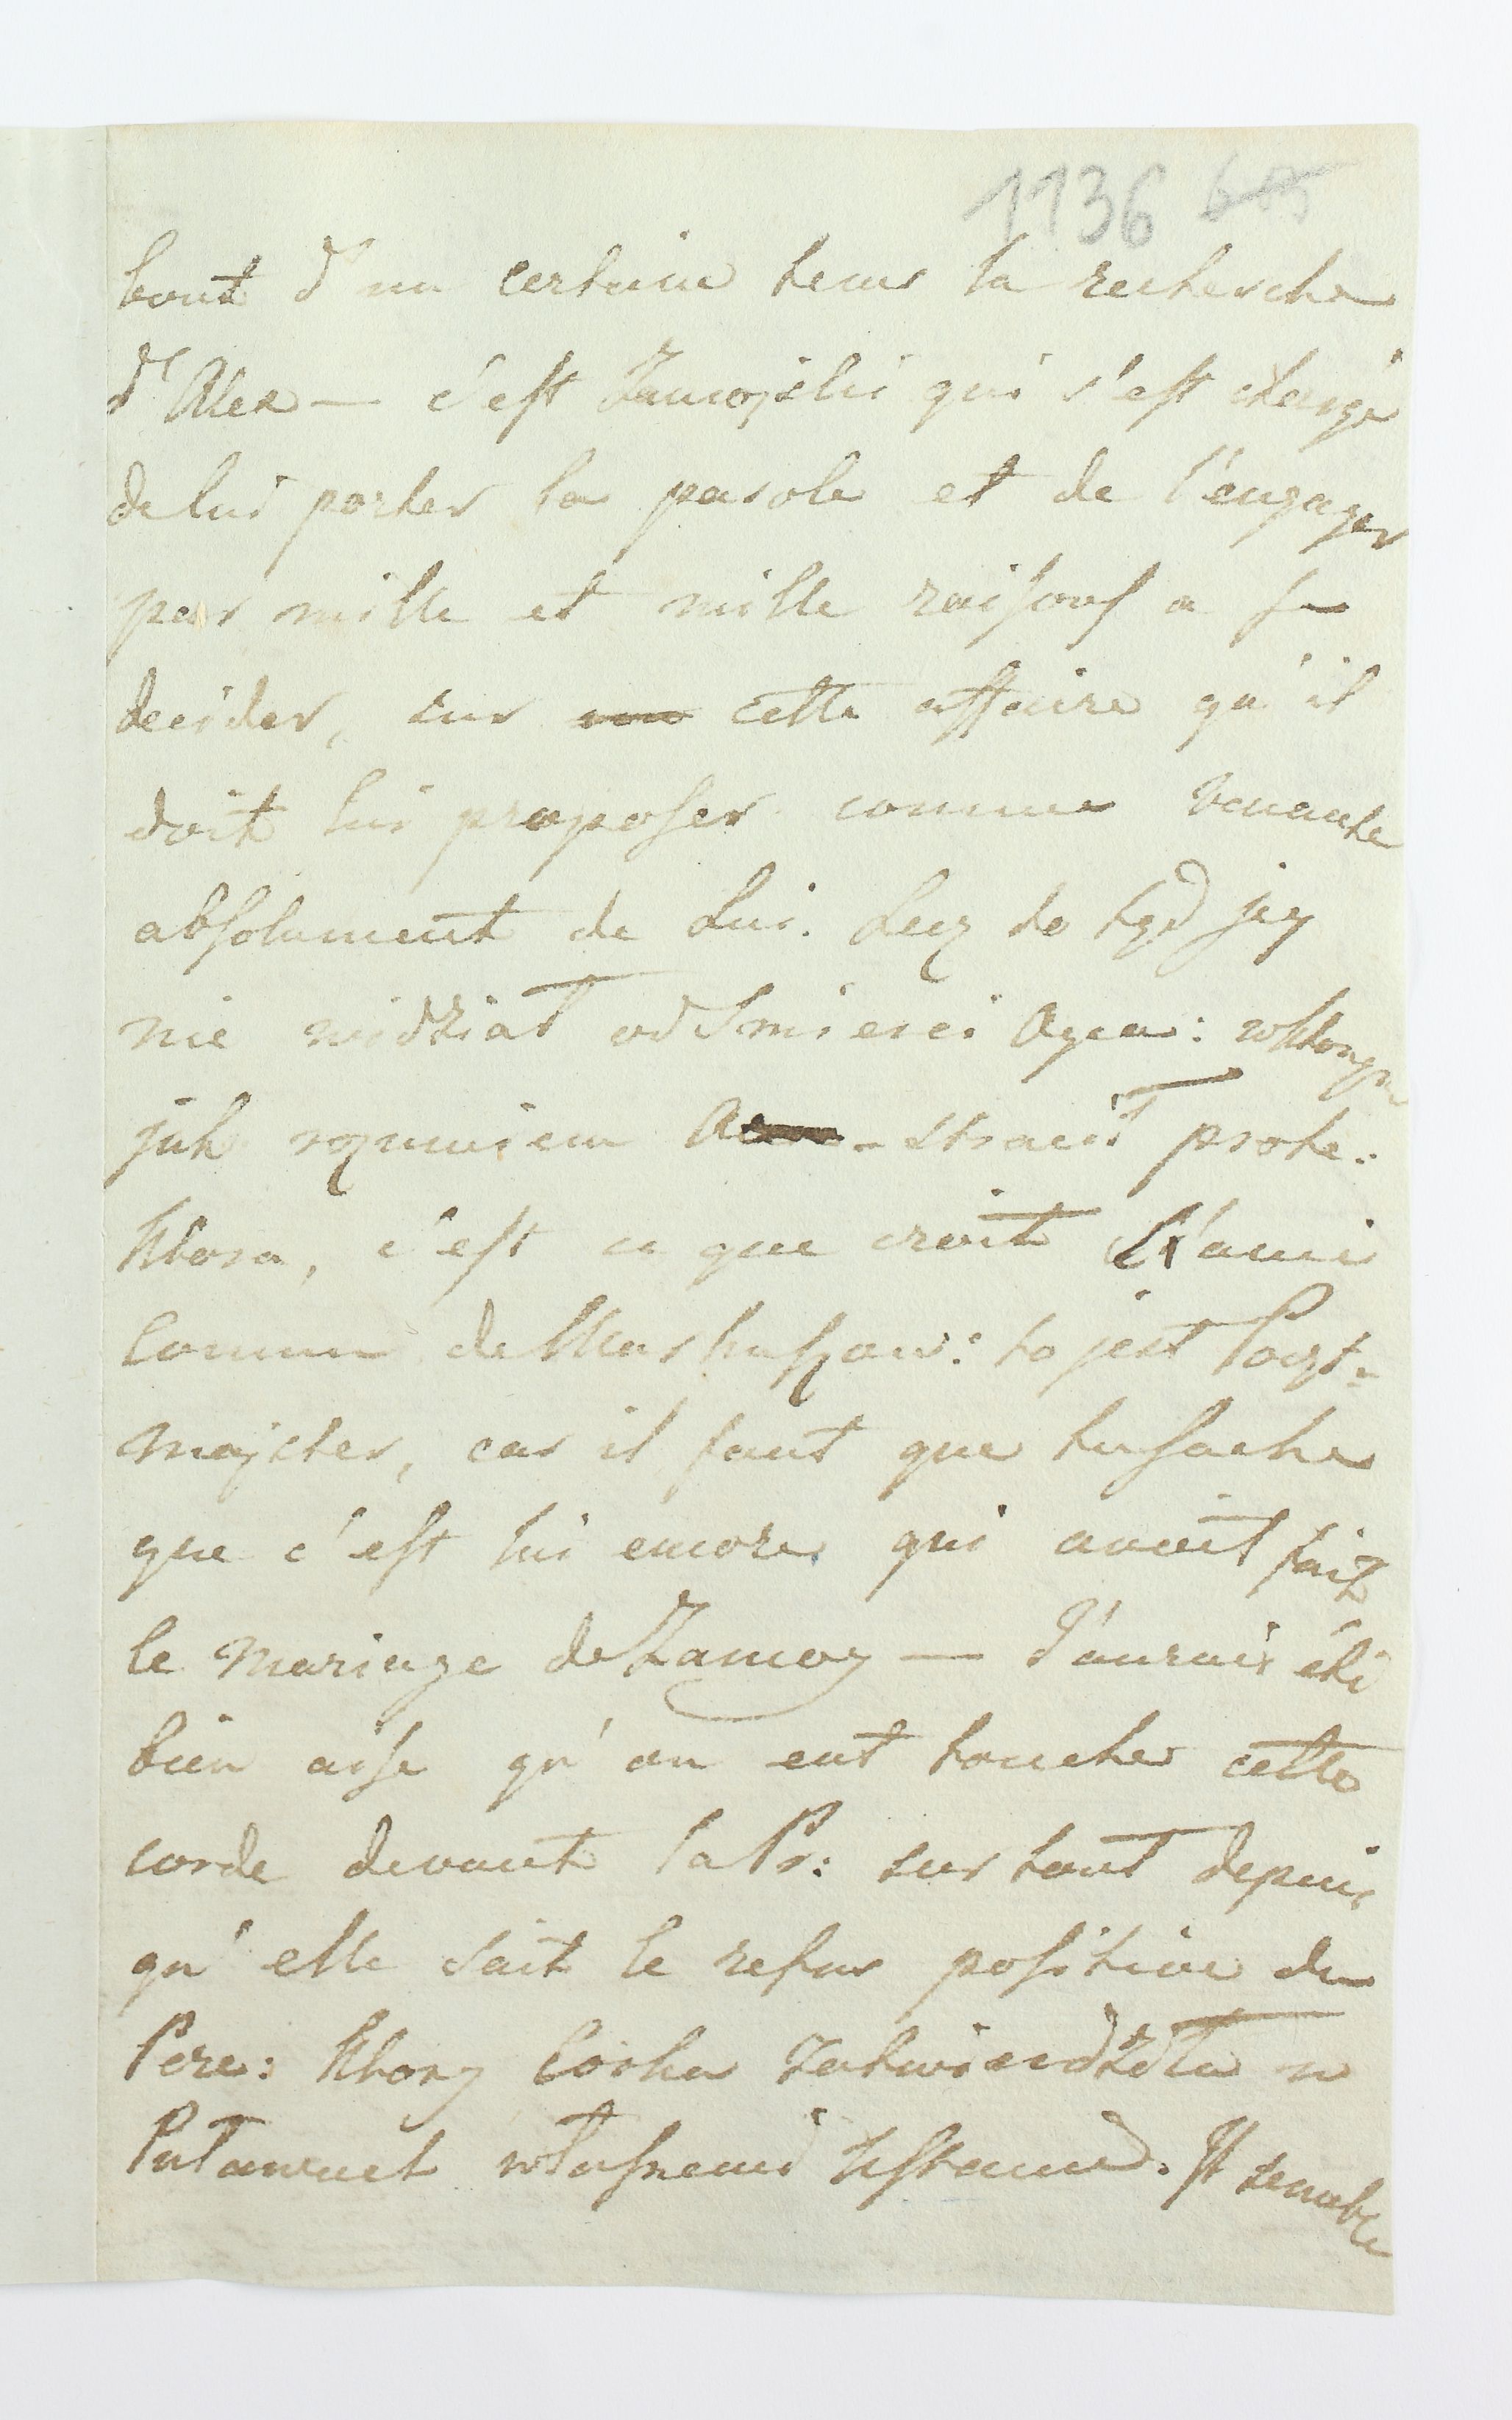 1136
bout d'un certain tems la recherche
d'Alex — c'est Zamojski qui s'est chargé
de lui porter la parole et de l'engager
par mille et mille raisons a se
decider, sur cette affaire qu'il
doit lui proposer comme venante
absolument de Lui. Lecz do tąd jej
nie widział od Smierci Ayca: w ktorym
jak rozumiem stracił prote:
ktora, c'est ce que croit L'ami
Comun de to jest Poczt=
majster, car il faut que tu sache
que c'est lui encore qui avoit fait
le mariage de Zamoy — J'aurais été
bien aise qu'on eut toucher cette
corde devant la Pr: sur tout depuis
qu'elle sait le refus positive du
Pere: ktory Corka zatwierdziła w
Puławach własnemi Ustami. Il semble